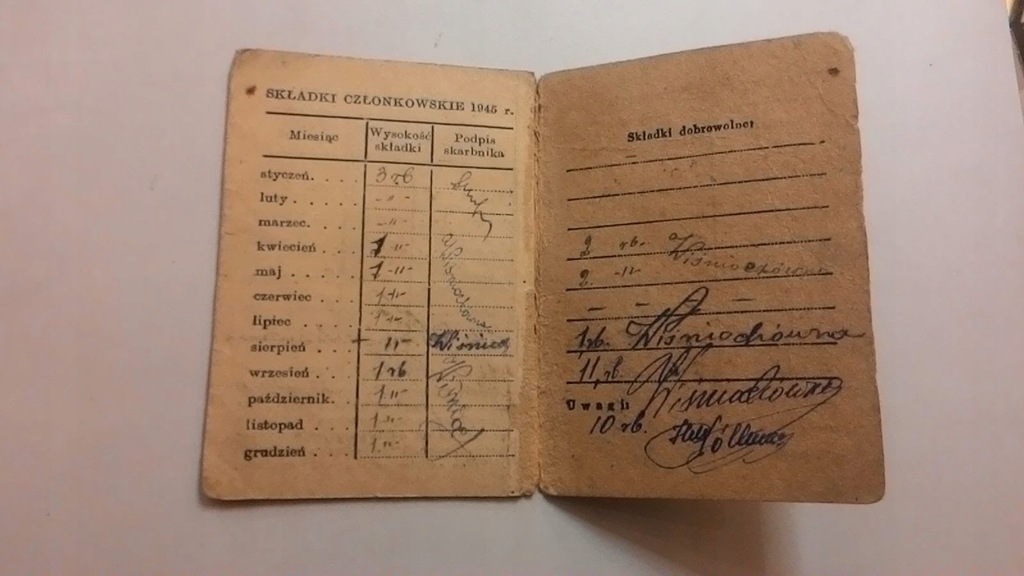 SKŁADKI CZŁONKOWSKIE 1945 r.
Miesiąc Wysokość składki Podpis skarbnika
styczeń. . . . 3 rb
luty . . . . . -"-
marzec. . . . -"-
kwiecień . . . 1 -"-
maj . . . . . 1 -"-
czerwiec . . . 1 -"-
lipiec . . . . 1 -"-
sierpień . . . -"-
wrzesień . . . 1 rb
październik. . 1 -"-
listopad . . . 1 -"-
grudzień . . . 1 -"-
Składki dobrowolne:
2 rb. Wiśniochówna
2. -"-
— — —
1 rb. Wiśniochówna
11, rb.
Uwagi: Wiśniochówna
10 rb.